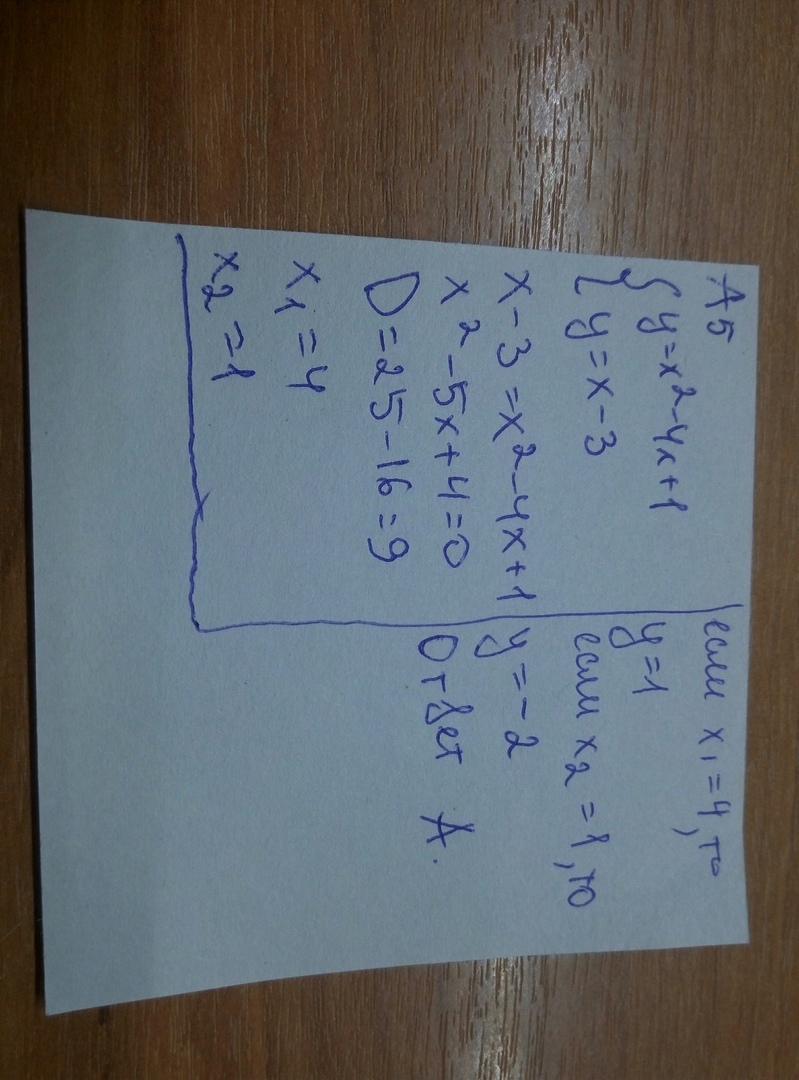 А5
{ y=x²-4x+1
{ y=x-3
x-3=x²-4x+1
x²-5x+4=0
D=25-16=9
x₁=4
x₂=1
если x₁=4, то
y=1
если x₂=1, то
y=-2
Ответ А.